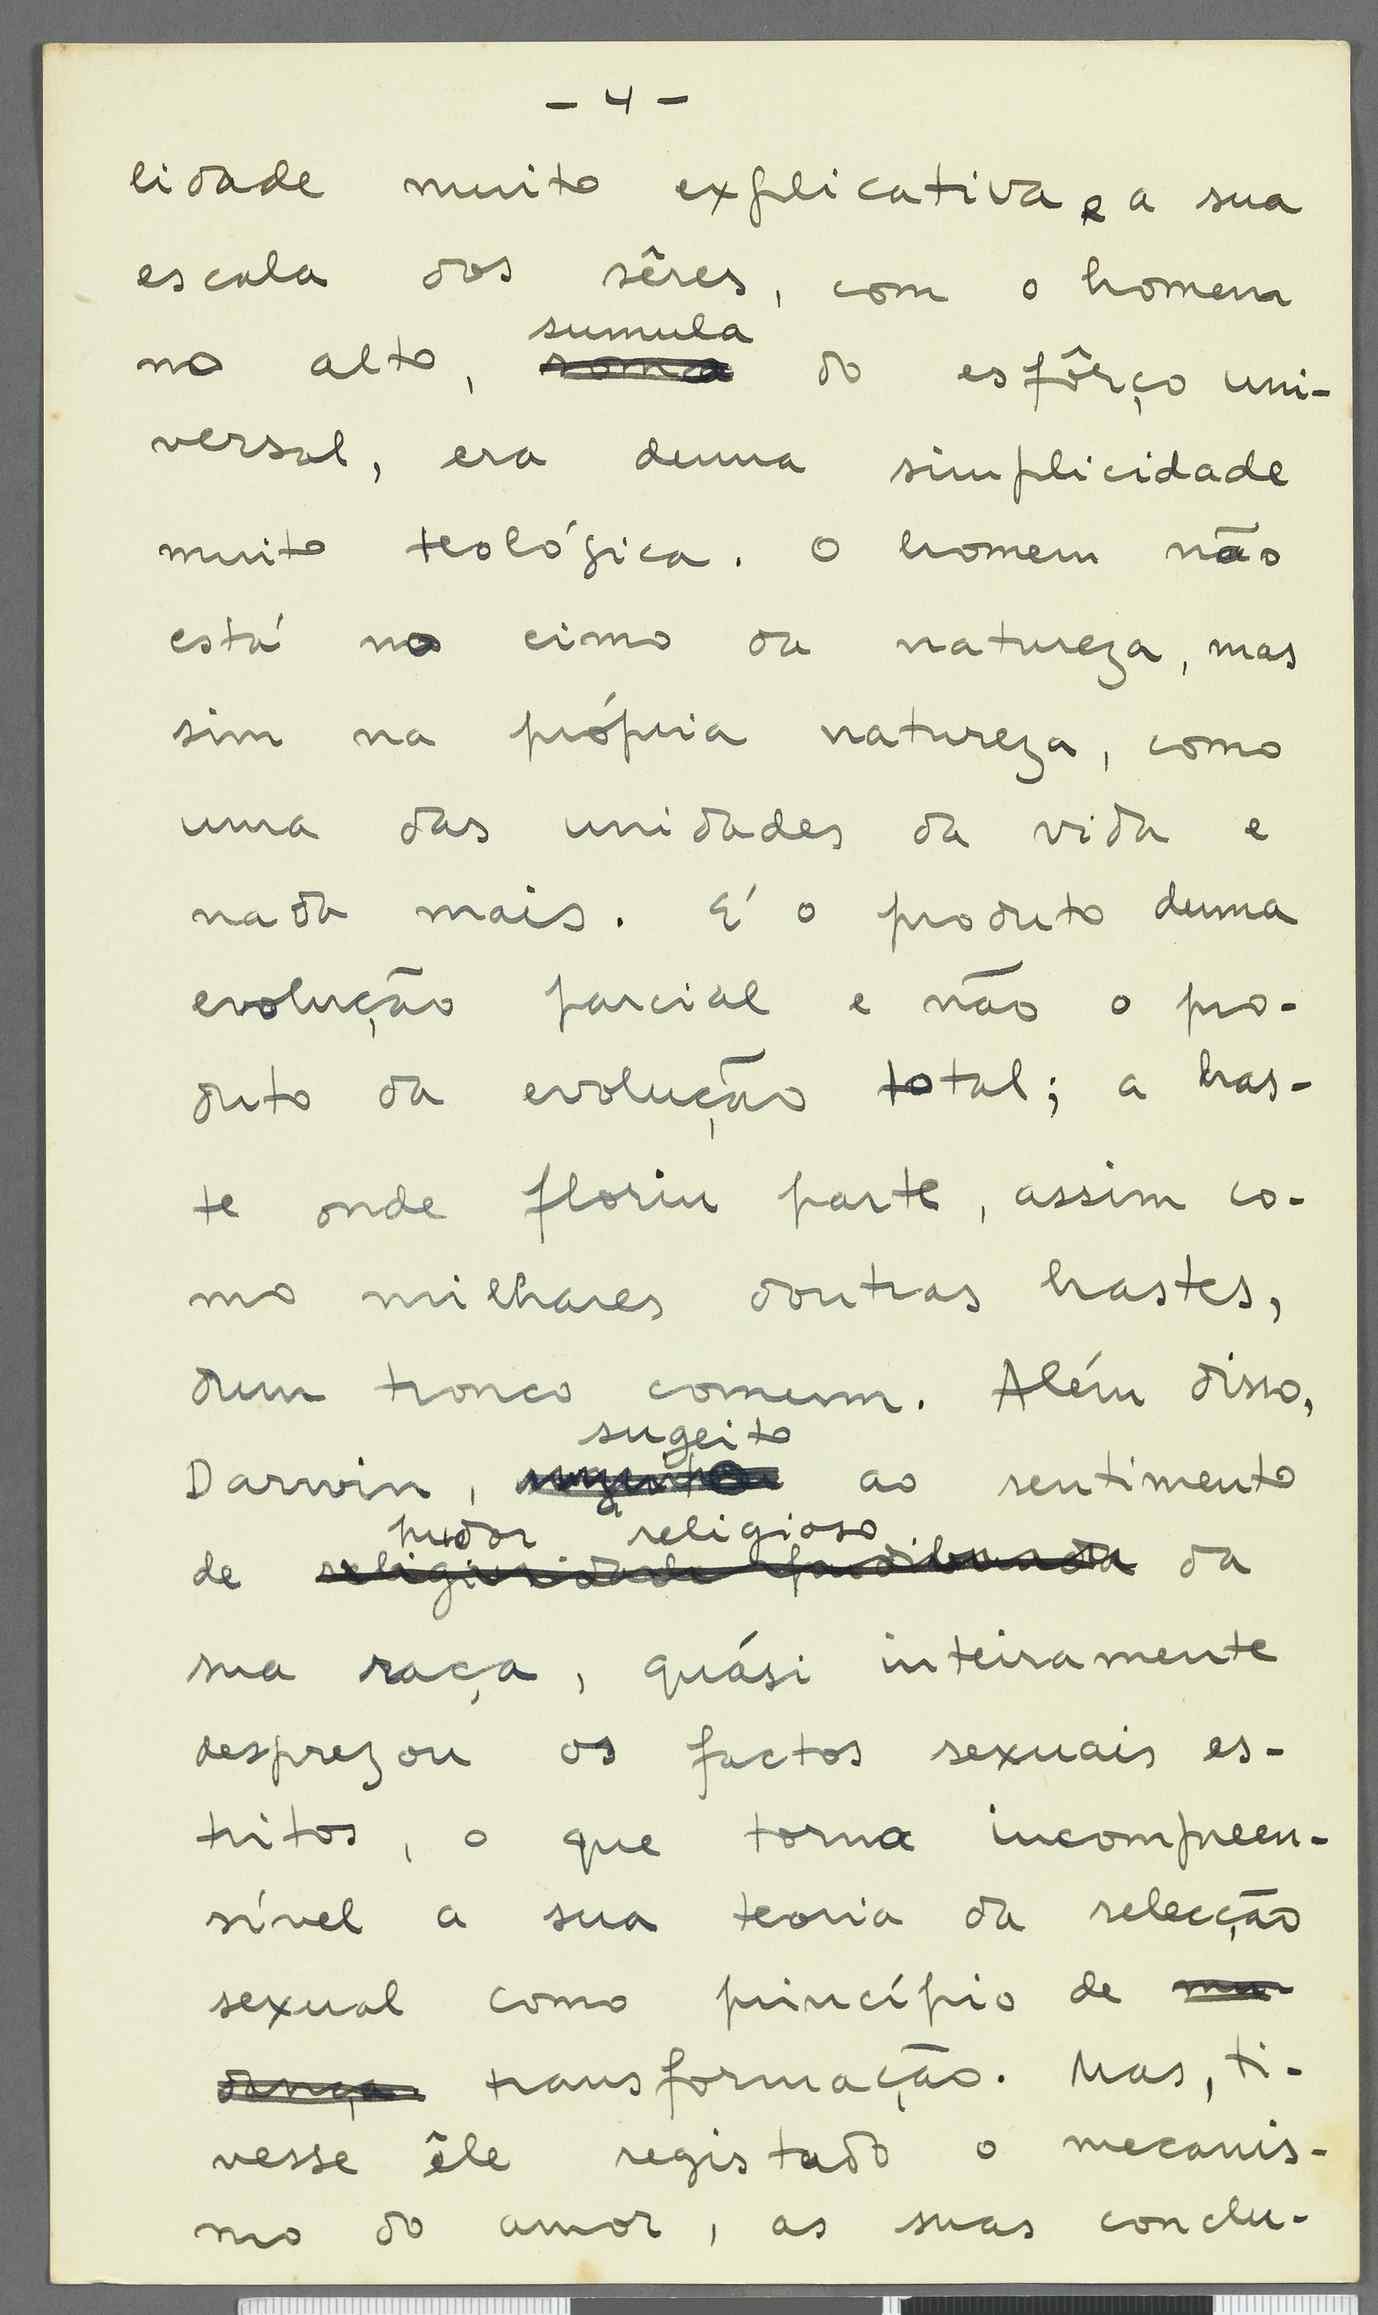 - 4 -
lidade muito explicativa e a sua
escala dos sêres, com o homem
sumula
no alto, soma do esfôrço uni-
versal, era duma simplicidade
muito teológica. O homem não
está no cimo da natureza, mas
sim na própria natureza, como
uma das unidades da vida e
nada mais. É o produto duma
evolução parcial e não o pro-
duto da evolução total; a has-
te onde floriu parte, assim co-
mo milhares doutras hastes,
dum tronco comum. Além disso,
sugeito
Darwin, ao sentimento
pudor religioso
de religiosidade pudibunda da
sua raça, quási inteiramente
desprezou os factos sexuais es-
tritos, o que torna incompreen-
sível a sua teoria da selecção
sexual como princípio de mu-
dança transformação. Mas, ti-
vesse êle registado o mecanis-
mo do amor, as suas conclu-